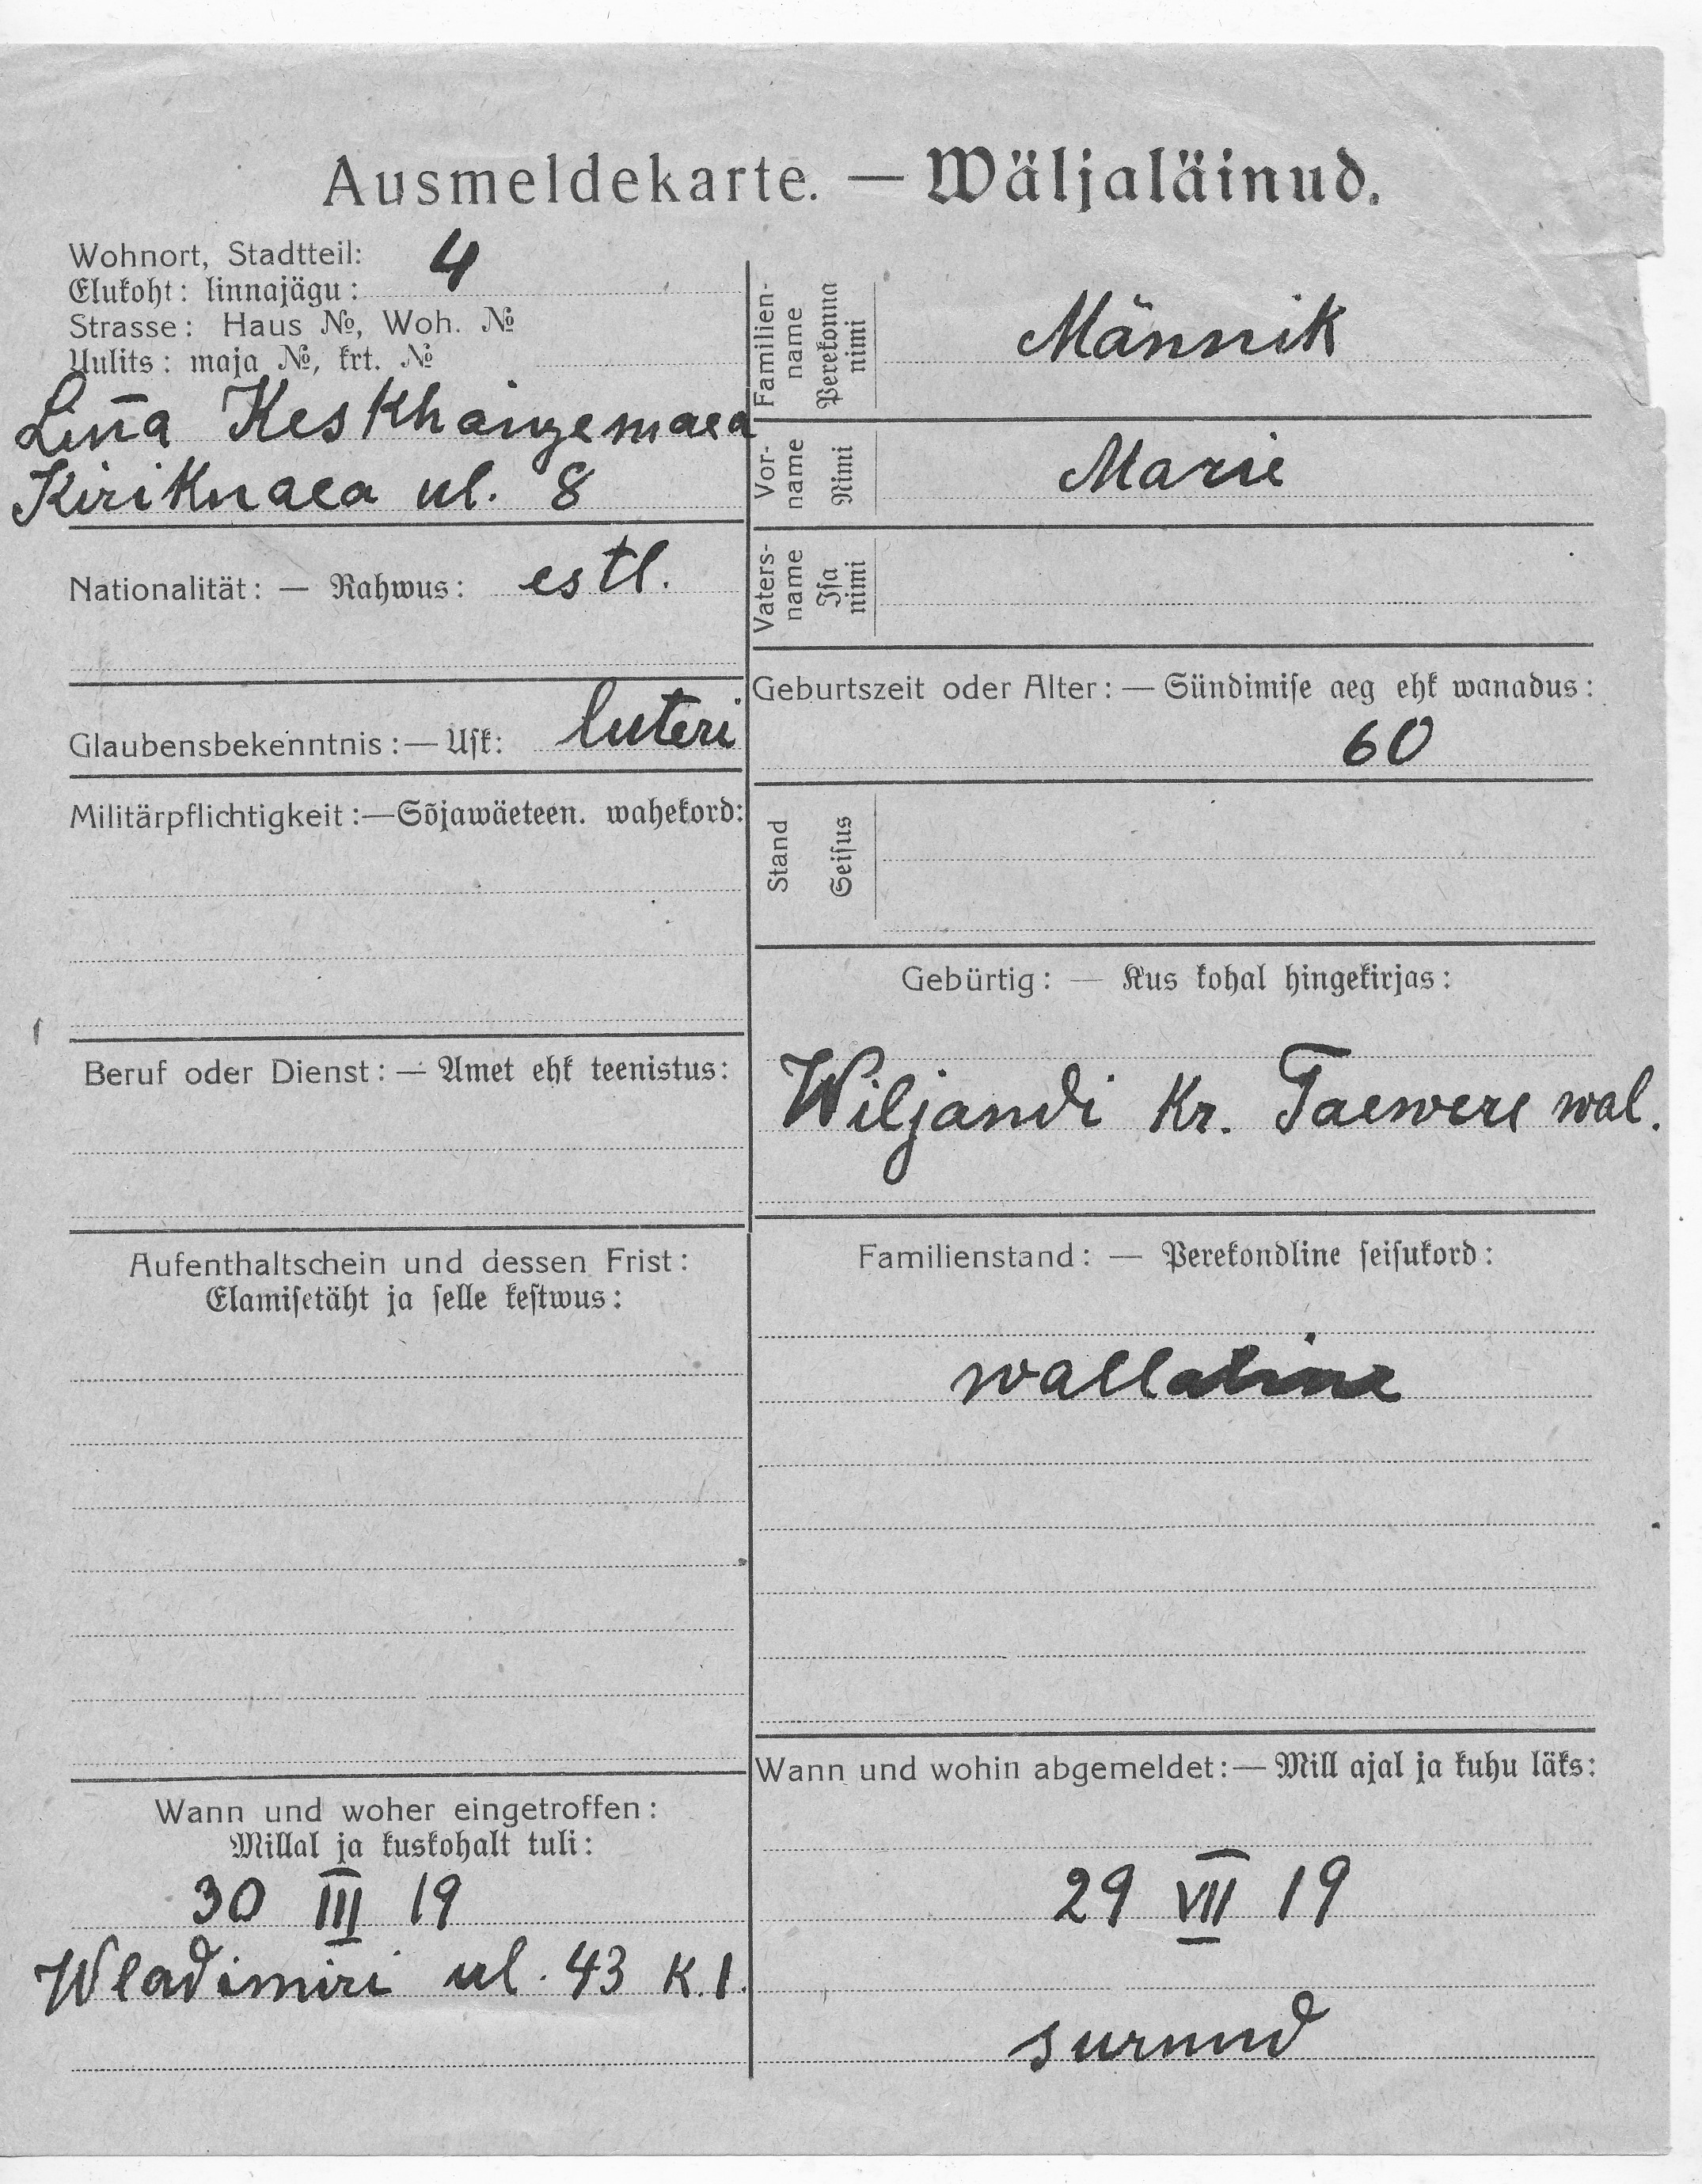 Ausmeldekarte. — Wäljaläinud.
Wohnort, Stadtteil: 4
Elukoht: linnajägu:
Strasse: Haus №, Woh. №
Uulits: maja №, krt. №
Lin̄a Keskhaigemaea
Kiriknaea ul. 8
Nationalität: — Rahwus: estl.
Glaubensbekenntnis: — Usk: luteri
Militärpflichtigkeit: — Sõjawäeteen. wahekord:
Beruf oder Dienst: — Amet ehk teenistus:
Aufenthaltschein und dessen Frist:
Elamisetäht ja selle kestwus:
Wann und woher eingetroffen:
Millal ja kuskohalt tuli:
30 III 19
Wladimiri ul. 43 k.1.
Familien-
name
Perekonna
nimi
Männik
Vor-
name
Nimi
Marie
Vaters-
name
Isa
nimi
Geburtszeit oder Alter: — Sündimise aeg ehk wanadus:
60
Stand
Seisus
Gebürtig: — Kus kohal hingekirjas:
Wiljandi Kr. Taewere wal.
Familienstand: — Perekondline seisukord:
wallaline
Wann und wohin abgemeldet: — Mill ajal ja kuhu läks:
29 VII 19
surnud